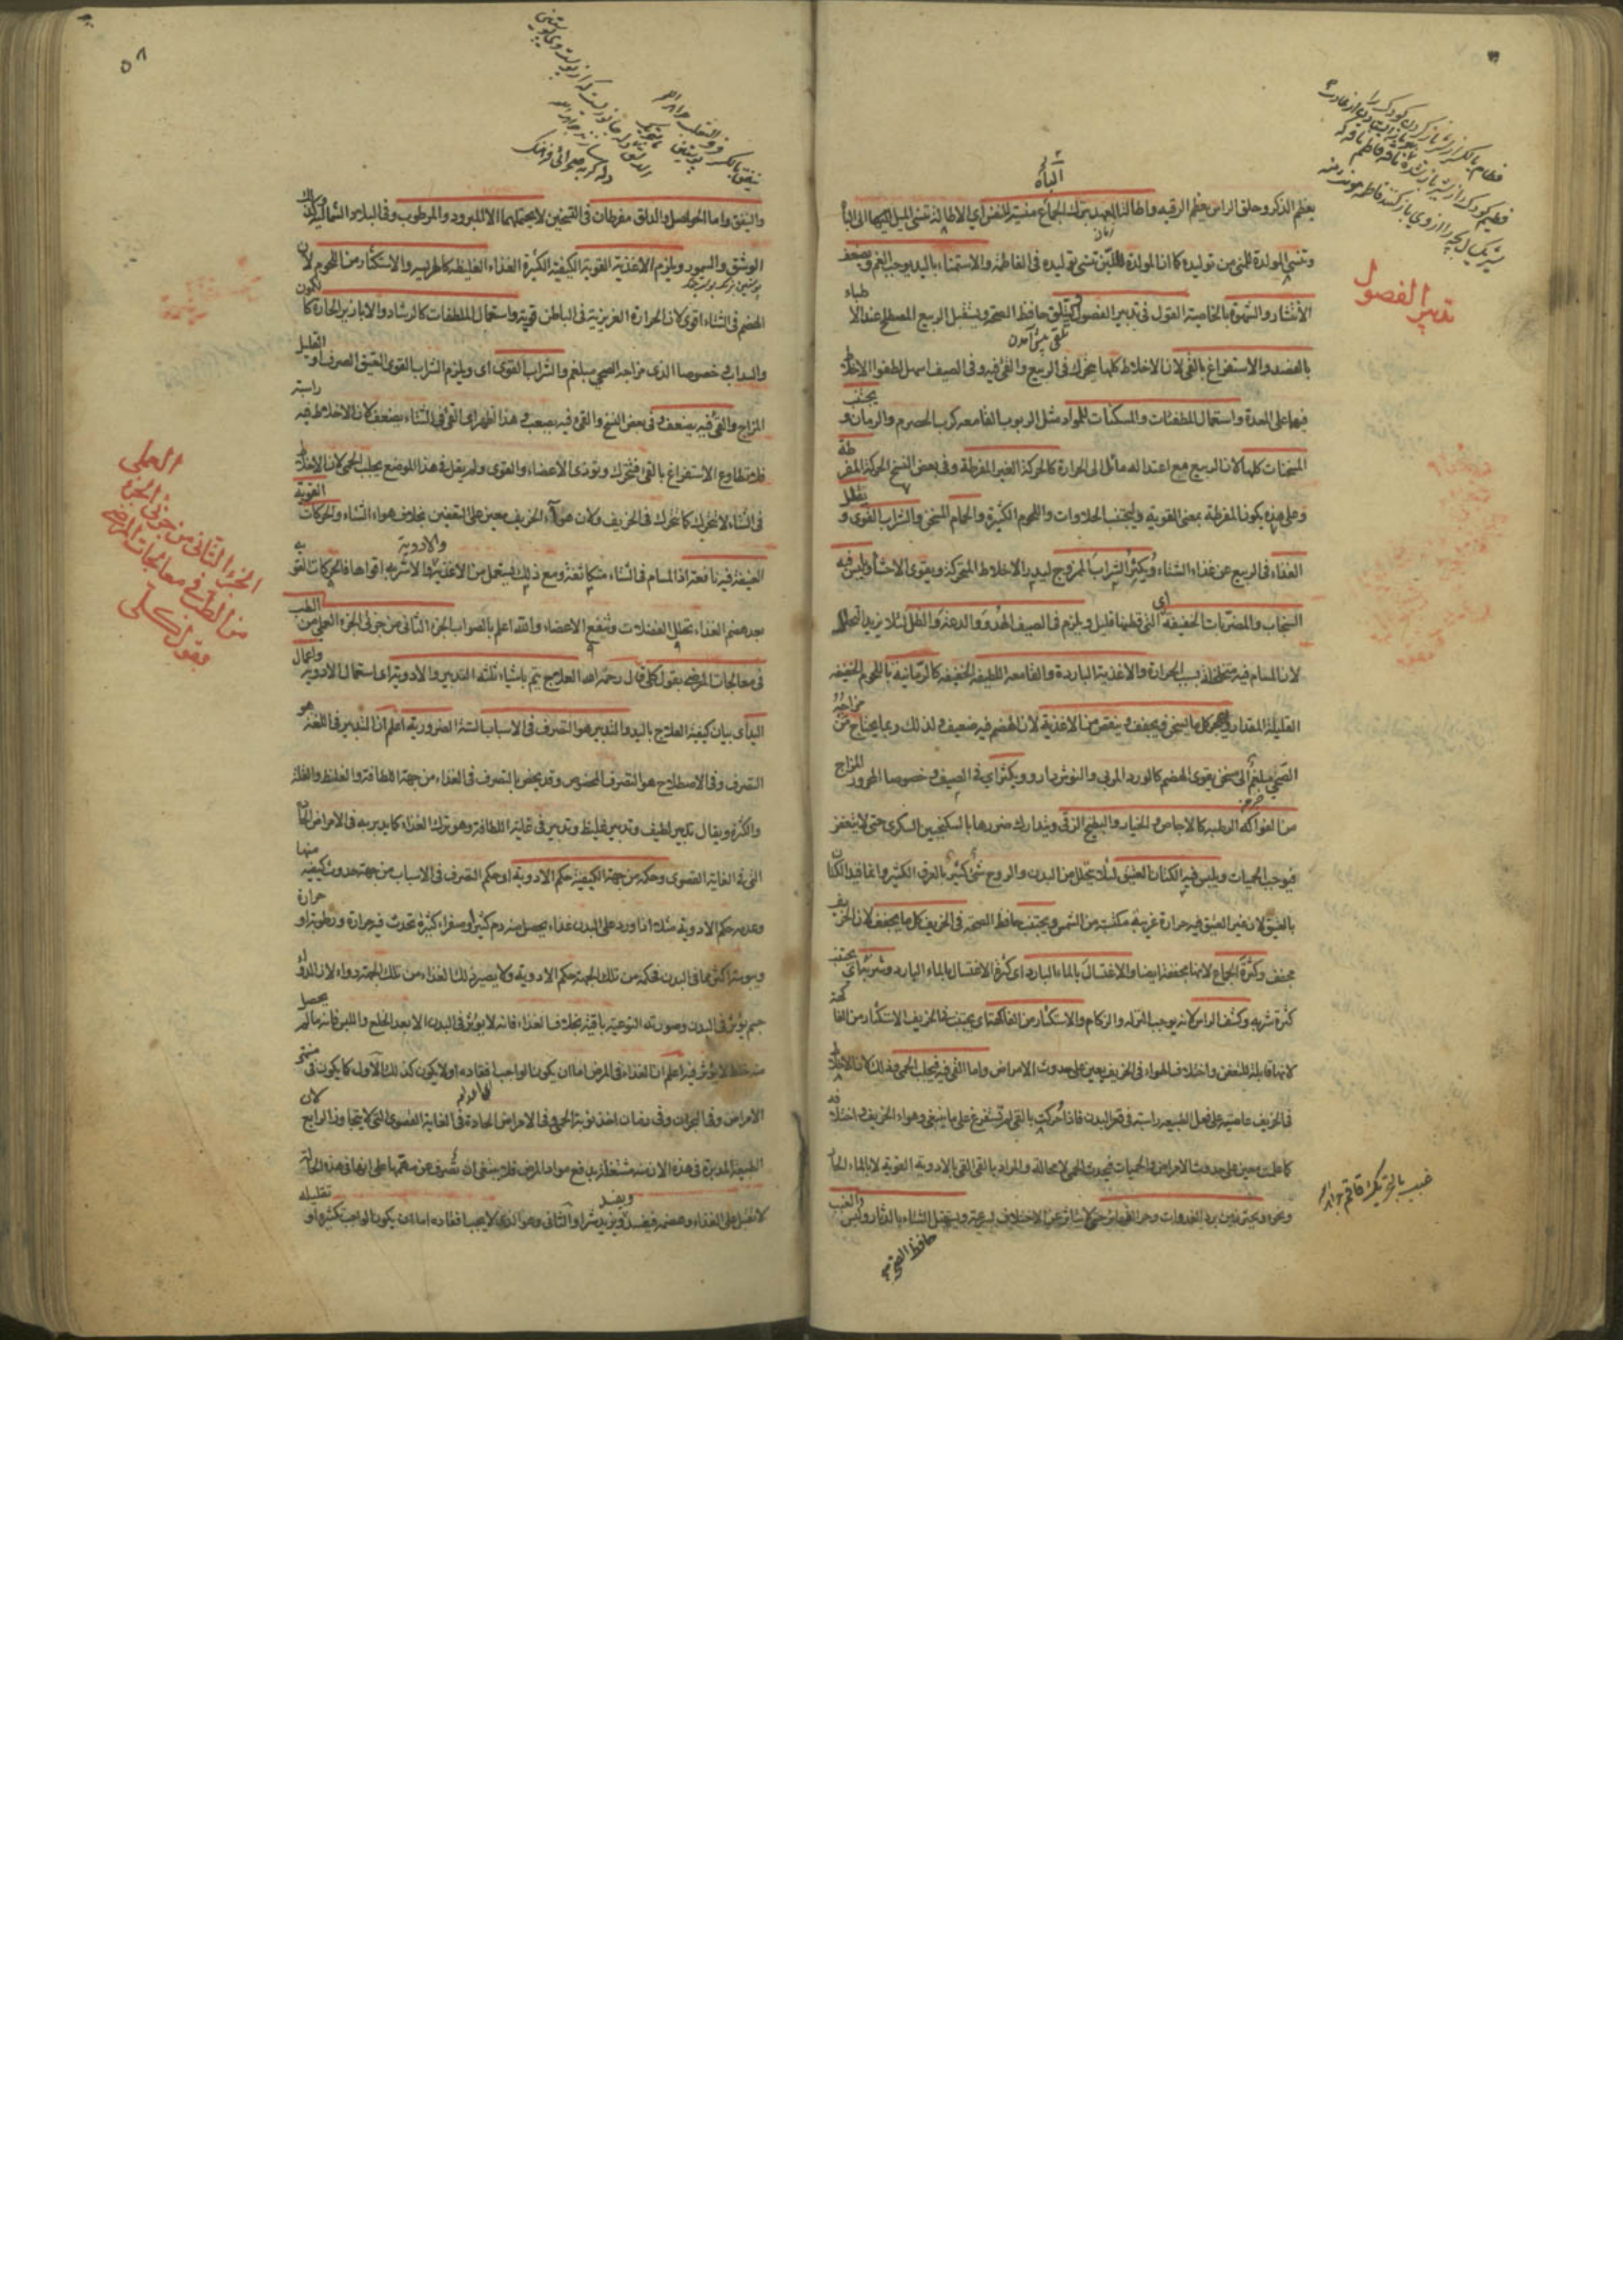 الباه
يعظم الذكر وحلق الراس يعظم الرقبة واطالة العهد بترك الجماع منسية للنفس اي الاطالة تنسي الميل اليها الى الباه
وتنسي المولدة للمني من توليده كما ان المولدة للبن تنسي توليده في الفاطمة والاستمناء باليد يوجب الغم ويضعف
الانتشار والشهوة بالخاصية القول في تدبير الفصول يتلقى حافظ الصحة ويستقبل الربيع المصطلح عند الاطباء
بالفصد والاستفراغ بالقي لان الاخلاط كلها يتحرك في الربيع والقي فيه وفي الصيف سهل لطفو الاخلاط
فيها على المعدة واستعمال المطفئات والمسكنات للمواد مثل الربوب القامعة كرب الحصرم والرمان و يجتنب
المسخنات كلها لان الربيع مع اعتداله مائل الى الحرارة كالحركة الغير المفرطة وفي بعض النسخ الحركة المفرطة
وعلى هذه يكون المفرطة بمعنى القوية ويجتنب الحلاوات واللحوم الكثيرة والحمام المسخن والشراب القوى و يقلل
الغذاء في الربيع عن غذاء الشتاء ويكثر الشراب الممزوج ليدر الاخلاط المتحركة ويقوى الاحشاء ويلبس فيه
السنجاب والمضربات الخفيفة اي التي قطنها قليل ويلزم في الصيف الهدو والدعة والظل لئلا يزيد التحلل
لان المسام فيه متخلخلة بسبب الحرارة والاغذية الباردة والقامعة اللطيفة الخفيفة كالرمانية باللحوم الخفيفة
القليلة المقدار ويهجر كل ما يسخن ويجفف وينقص من الاغذية لان الهضم فيه ضعيف ولذلك ربما يحتاج من مزاجه
الصحي بلغمي الى مسخن يقوى الهضم كالورد المربى والنوش دارو ويكثر اي في الصيف وخصوصا المحرور المزاج
من الفواكه الرطبة كالاجاص والخيار والبطيخ الزقي ويتدارك ضررها بالسكنجبين السكري حتى لا يتعفن
فيوجب الحميات ويلبس فيه الكتان العتيق لئلا يتحلل من البدن والروح شئ كثير بالعرق الكثير وانما قيد الكتان
بالعتيق لان غير العتيق فيه حرارة غريبة مكتسبة من الشمس ويجتنب حافظ الصحة في الخريف كل ما يجفف لان الخريف
مجفف وكثرة الجماع لانها مجففة ايضا والاغتسال بالماء البارد اي كثرة الاغتسال بالماء البارد وشربه اي يجتنب
كثرة شربه وكشف الراس لانه يوجب النزلة والزكام والاستكثار من الفاكهة اي يجتنب في الخريف الاستكثار من الفاكهة
لانها قابلة للتعفن واختلاف الهواء في الخريف يعين على حدوث الامراض واما القي فيه فيجلب الحمى وذلك لان الاخلاط
في الخريف عاصية على فعل الطبيعة راسبة في قعر البدن فاذا حركت بالقي لم تستفرغ على ما ينبغي وهواء الخريف واختلافه
كما علمت معين على حدوث الامراض والحميات فيحدث الحمى لا محالة والمراد بالقي القي بالادوية القوية لا بالماء الحار
ونحوه ويحترز من برد الغدوات وحر الظهائر حتى لا يتأثر عن الاختلاف بسرعة ويستقبل الشتاء بالدثار ولبس
تدبير الفصول
والنيفق واما الحواصل والدلق مفرطان في التسخين لا يحتملهما الا المبرود والمرطوب وفي البلاد الشمالية
الوشق والسمور ويلزم الاغذية القوية الكيفية الكثيرة الغذاء الغليظة كالهريسة والاستكثار من اللحوم لان
الهضم في الشتاء اقوى لان الحرارة الغريزية في الباطن قوية واستعمال الملطفات كالرشاد والابازير الحارة كالكمون
والسداب خصوصا الذي مزاجه الصحي بلغمي والشراب القوى اي ويلزم الشراب القوى العتيق الصرف او القليل
المزاج والقي فيه يضعف وفي بعض النسخ والقي فيه يصعب وهذا اظهر اي القي في الشتاء يضعف لان الاخلاط فيه راسبة
فلا تطاوع الاستفراغ بالقي فتتحرك وتوذى الاعضاء والقوى ولم يقل في هذا الموضع يجلب الحمى لان الاخلاط
في الشتاء لا تتحرك كما تتحرك في الخريف ولان هواء الخريف معين على التعفين بخلاف هواء الشتاء والحركات القوية
العنيفة فيه نافعة اذ المسام في الشتاء متكاثفة ومع ذلك يستعمل من الاغذية والاشربة والادوية اقواها فالحركات القوية
بعد هضم الغذاء تحلل الفضلات وتنفع الاعضاء والله اعلم بالصواب الجزء الثاني من جزئي الجزء العملي من الطب
في معالجات المرضى بقول كلي قال رحمه الله العلاج يتم باشياء ثلثة التدبير والادوية اي استعمال الادوية واعمال
اليد اي بيان كيفية العلاج باليد والتدبير هو التصرف في الاسباب الستة الضرورية اعلم ان التدبير في اللغة هو
التصرف وفي الاصطلاح هو التصرف المخصوص وقد يخص بالتصرف في الغذاء من جهة اللطافة والغلظ والقلة
والكثرة ويقال تدبير لطيف وتدبير غليظ وتدبير في غاية اللطافة وهو ترك الغذاء كما يدبر به في الامراض الحادة
التي في الغاية القصوى وحكمه من جهة الكيفية حكم الادوية اي حكم التصرف في الاسباب من جهة حدوث كيفية منها
وعدمه حكم الادوية مثلا اذا ورد على البدن غذاء يحصل منه دم كثير او صفراء كثيرة تحدث فيه حرارة ورطوبة او حرارة
ويبوسة اكثر مما في البدن فحكمه من تلك الجهة حكم الادوية ولا يصير ذلك الغذاء من تلك الجهة دواء لان الدواء
جسم يؤثر في البدن وصورته النوعية باقية بخلاف الغذاء فانه لا يؤثر في البدن الا بعد الخلع واللبس فانه ما لم يحصل
منه خلط لا يؤثر فيه اعلم ان الغذاء في المرض اما ان يكون الواجب افقاده او لا يكون كذلك الاول كما يكون في منتهى
الامراض وفي البحران وفي زمان اخذ نوبة الحمى وفي الامراض الحادة في الغاية القصوى التي لا يتجاوز الرابع لان
الطبيعة المدبرة في هذه الازمنة مشتغلة بدفع مواد المرض فلا ينبغي ان تصرف عن مهمتها على انها في هذه الحالة
لا تقبل على الغذاء وهضمه فيفسد ويزيد شرا والثاني وهو الذي لا يجب افقاده اما ان يكون الواجب تكثيره او تقليله
الجزء الثاني من جزئي الجزء العملي
من الطب في معالجات المرضى
بقول كلي
٥٨